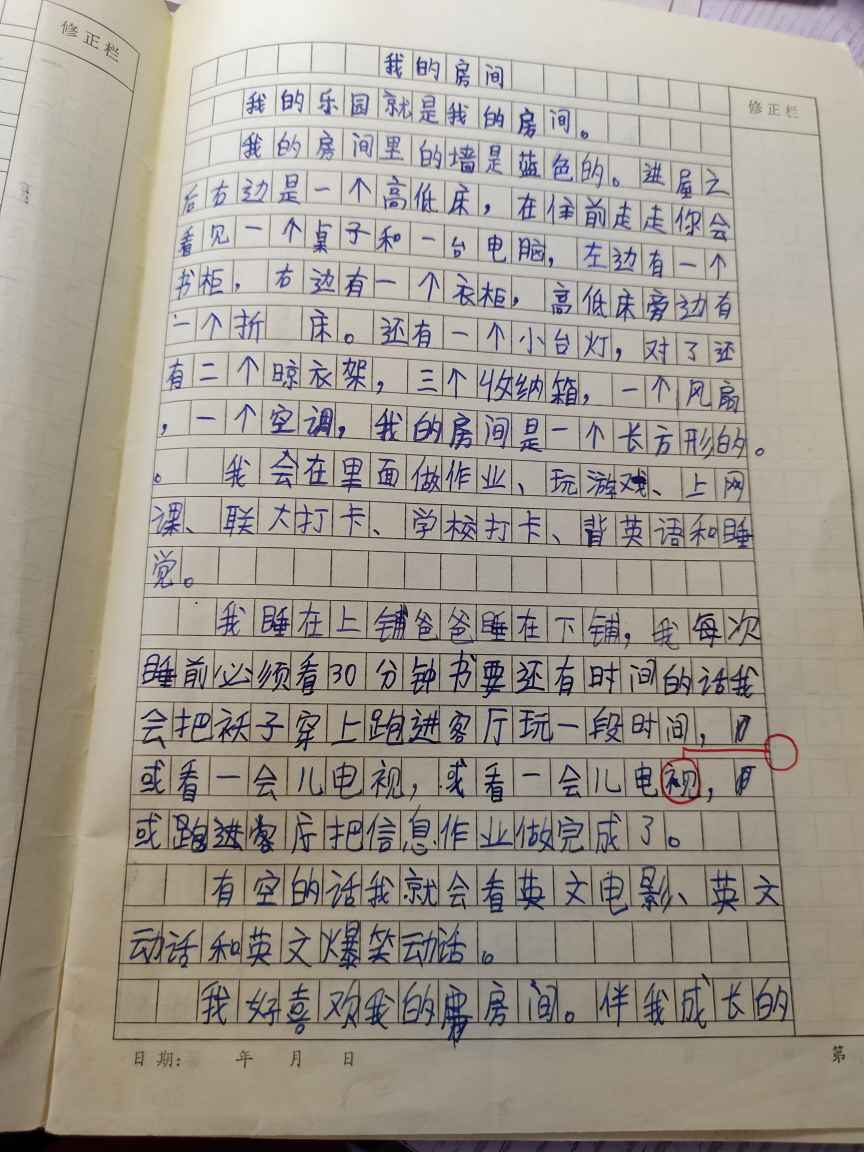 修正栏
我的房间
修正栏
我的乐园就是我的房间。
我的房间里的墙是蓝色的。进屋之
后右边是一个高低床，在住前走走你会
看见一个桌子和一台电脑，左边有一个
书柜，右边有一个衣柜，高低床旁边有
一个折 床。还有一个小台灯，对了还
有二个晾衣架，三个收纳箱，一个风扇
，一个空调，我的房间是一个长方形的。
。 我会在里面做作业、玩游戏、上网
课、联大打卡、学校打卡、背英语和睡
觉。
我睡在上铺爸爸睡在下铺，我每次
睡前必须看30分钟书要还有时间的话我
会把袄子穿上跑进客厅玩一段时间，
或看一会儿电视，或看一会儿电视，
或跑进客厅把信息作业做完成了。
有空的话我就会看英文电影、英文
动话和英文爆笑动话。
我好喜欢我的房间。伴我成长的
日期： 年 月 日
第